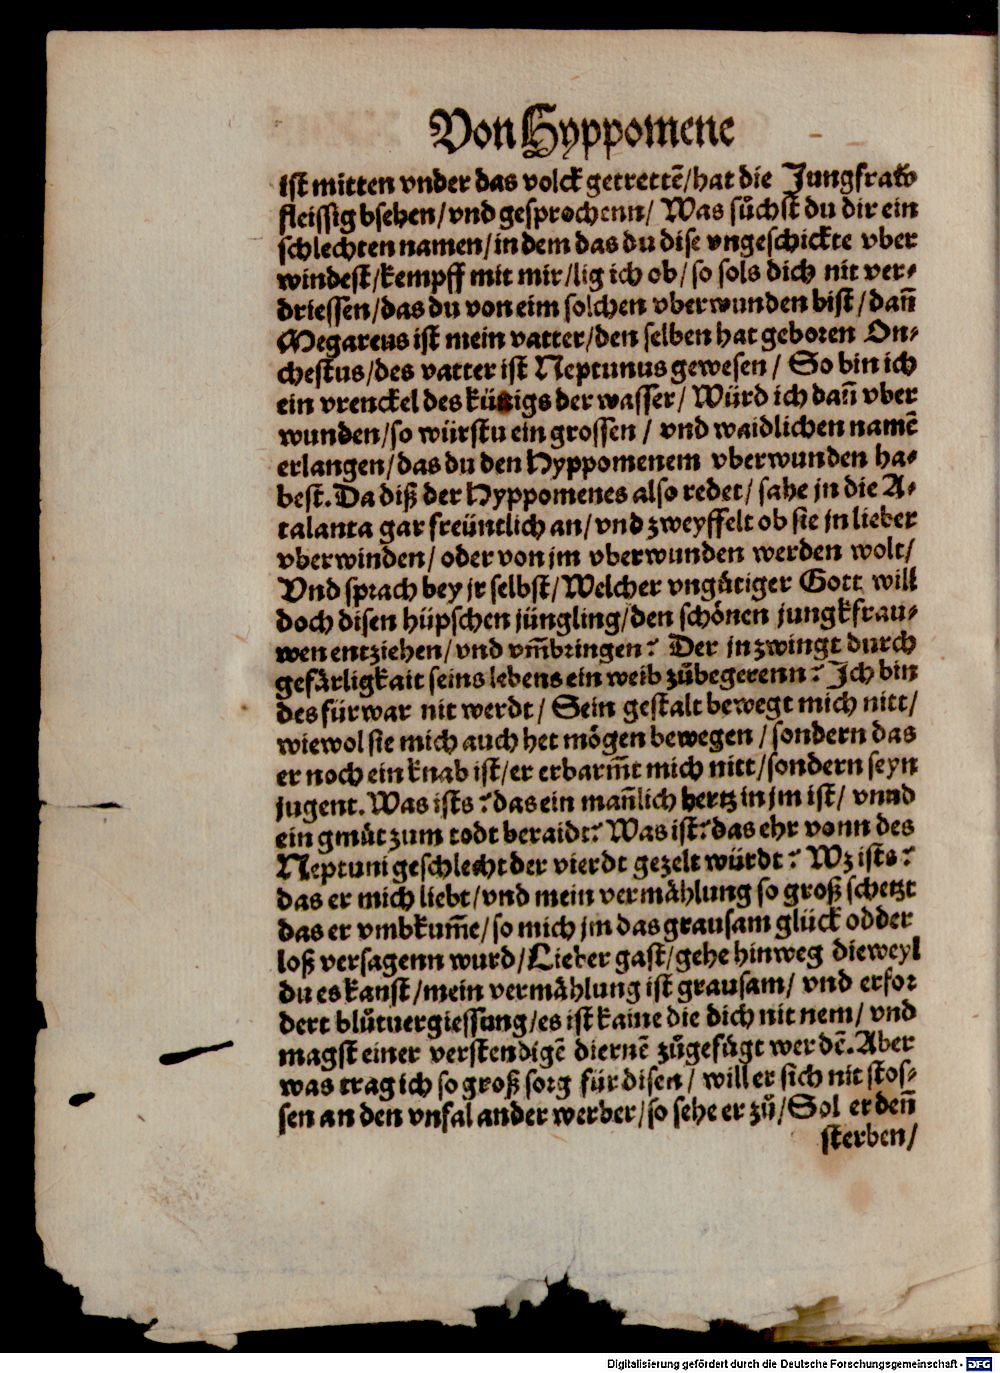 Von Hyppomene
ist mitten vnder das volck getrettē/hat die Jungfraw
fleissig bsehen/vnd gesprochenn/ Was sůchst du dir ein
schlechten namen/in dem das du dise vngeschickte vber
windest/kempff mit mir/lig ich ob/so sols dich nit ver⸗
driessen/das du von eim solchen vberwunden bist/dañ
Megareus ist mein vatter/den selben hat geboren On⸗
chestus/des vatter ist Neptunus gewesen/ So bin ich
ein vrenckel des künigs der wasser/ Würd ich dañ vber
wunden/so würstu ein grossen/ vnd waidlichen namē
erlangen/das du den Hyppomenem vberwunden ha⸗
best. Da diß der Hyppomenes also redet/ sahe jn die A⸗
talanta gar freüntlich an/vnd zweyffelt ob sie jn lieber
vberwinden/ oder von jm vberwunden werden wolt/
Vnd sprach bey jr selbst/Welcher vngůtiger Gott will
doch disen hüpschen jüngling/den schönen jungkfrau⸗
wen entziehen/vnd vm̄bringen? Der jn zwingt durch
gefärligkait seins lebens ein weib zůbegerenn? Ich bin
des fürwar nit werdt/ Sein gestalt bewegt mich nitt/
wiewol sie mich auch het mögen bewegen/sondern das
er noch ein knab ist/er erbarm̄t mich nitt/sondern seyn
jugent. Was ists? das ein mañlich hertz in jm ist/ vnnd
ein gmůt zum todt beraidt? Was ist? das ehr vonn des
Neptuni geschlecht der vierdt gezelt würdt? Wz ists?
das er mich liebt/vnd mein vermählung so groß schetzt
das er vmbkum̄e/so mich jm das grausam glück odder
loß versagenn wurd/Lieber gast/gehe hinweg dieweyl
du es kanst/mein vermählung ist grausam/ vnd erfor
dert blůtuergiessung/es ist kaine die dich nit nem/ vnd
magst einer verstendigē diernē zůgefůgt werdē. Aber
was trag ich so groß sorg für disen/ will er sich nit stos⸗
sen an den vnfal ander werber/so sehe er zů/Sol er deñ
sterben/
Digitalisierung gefördert durch die Deutsche Forschungsgemeinschaft - DFG